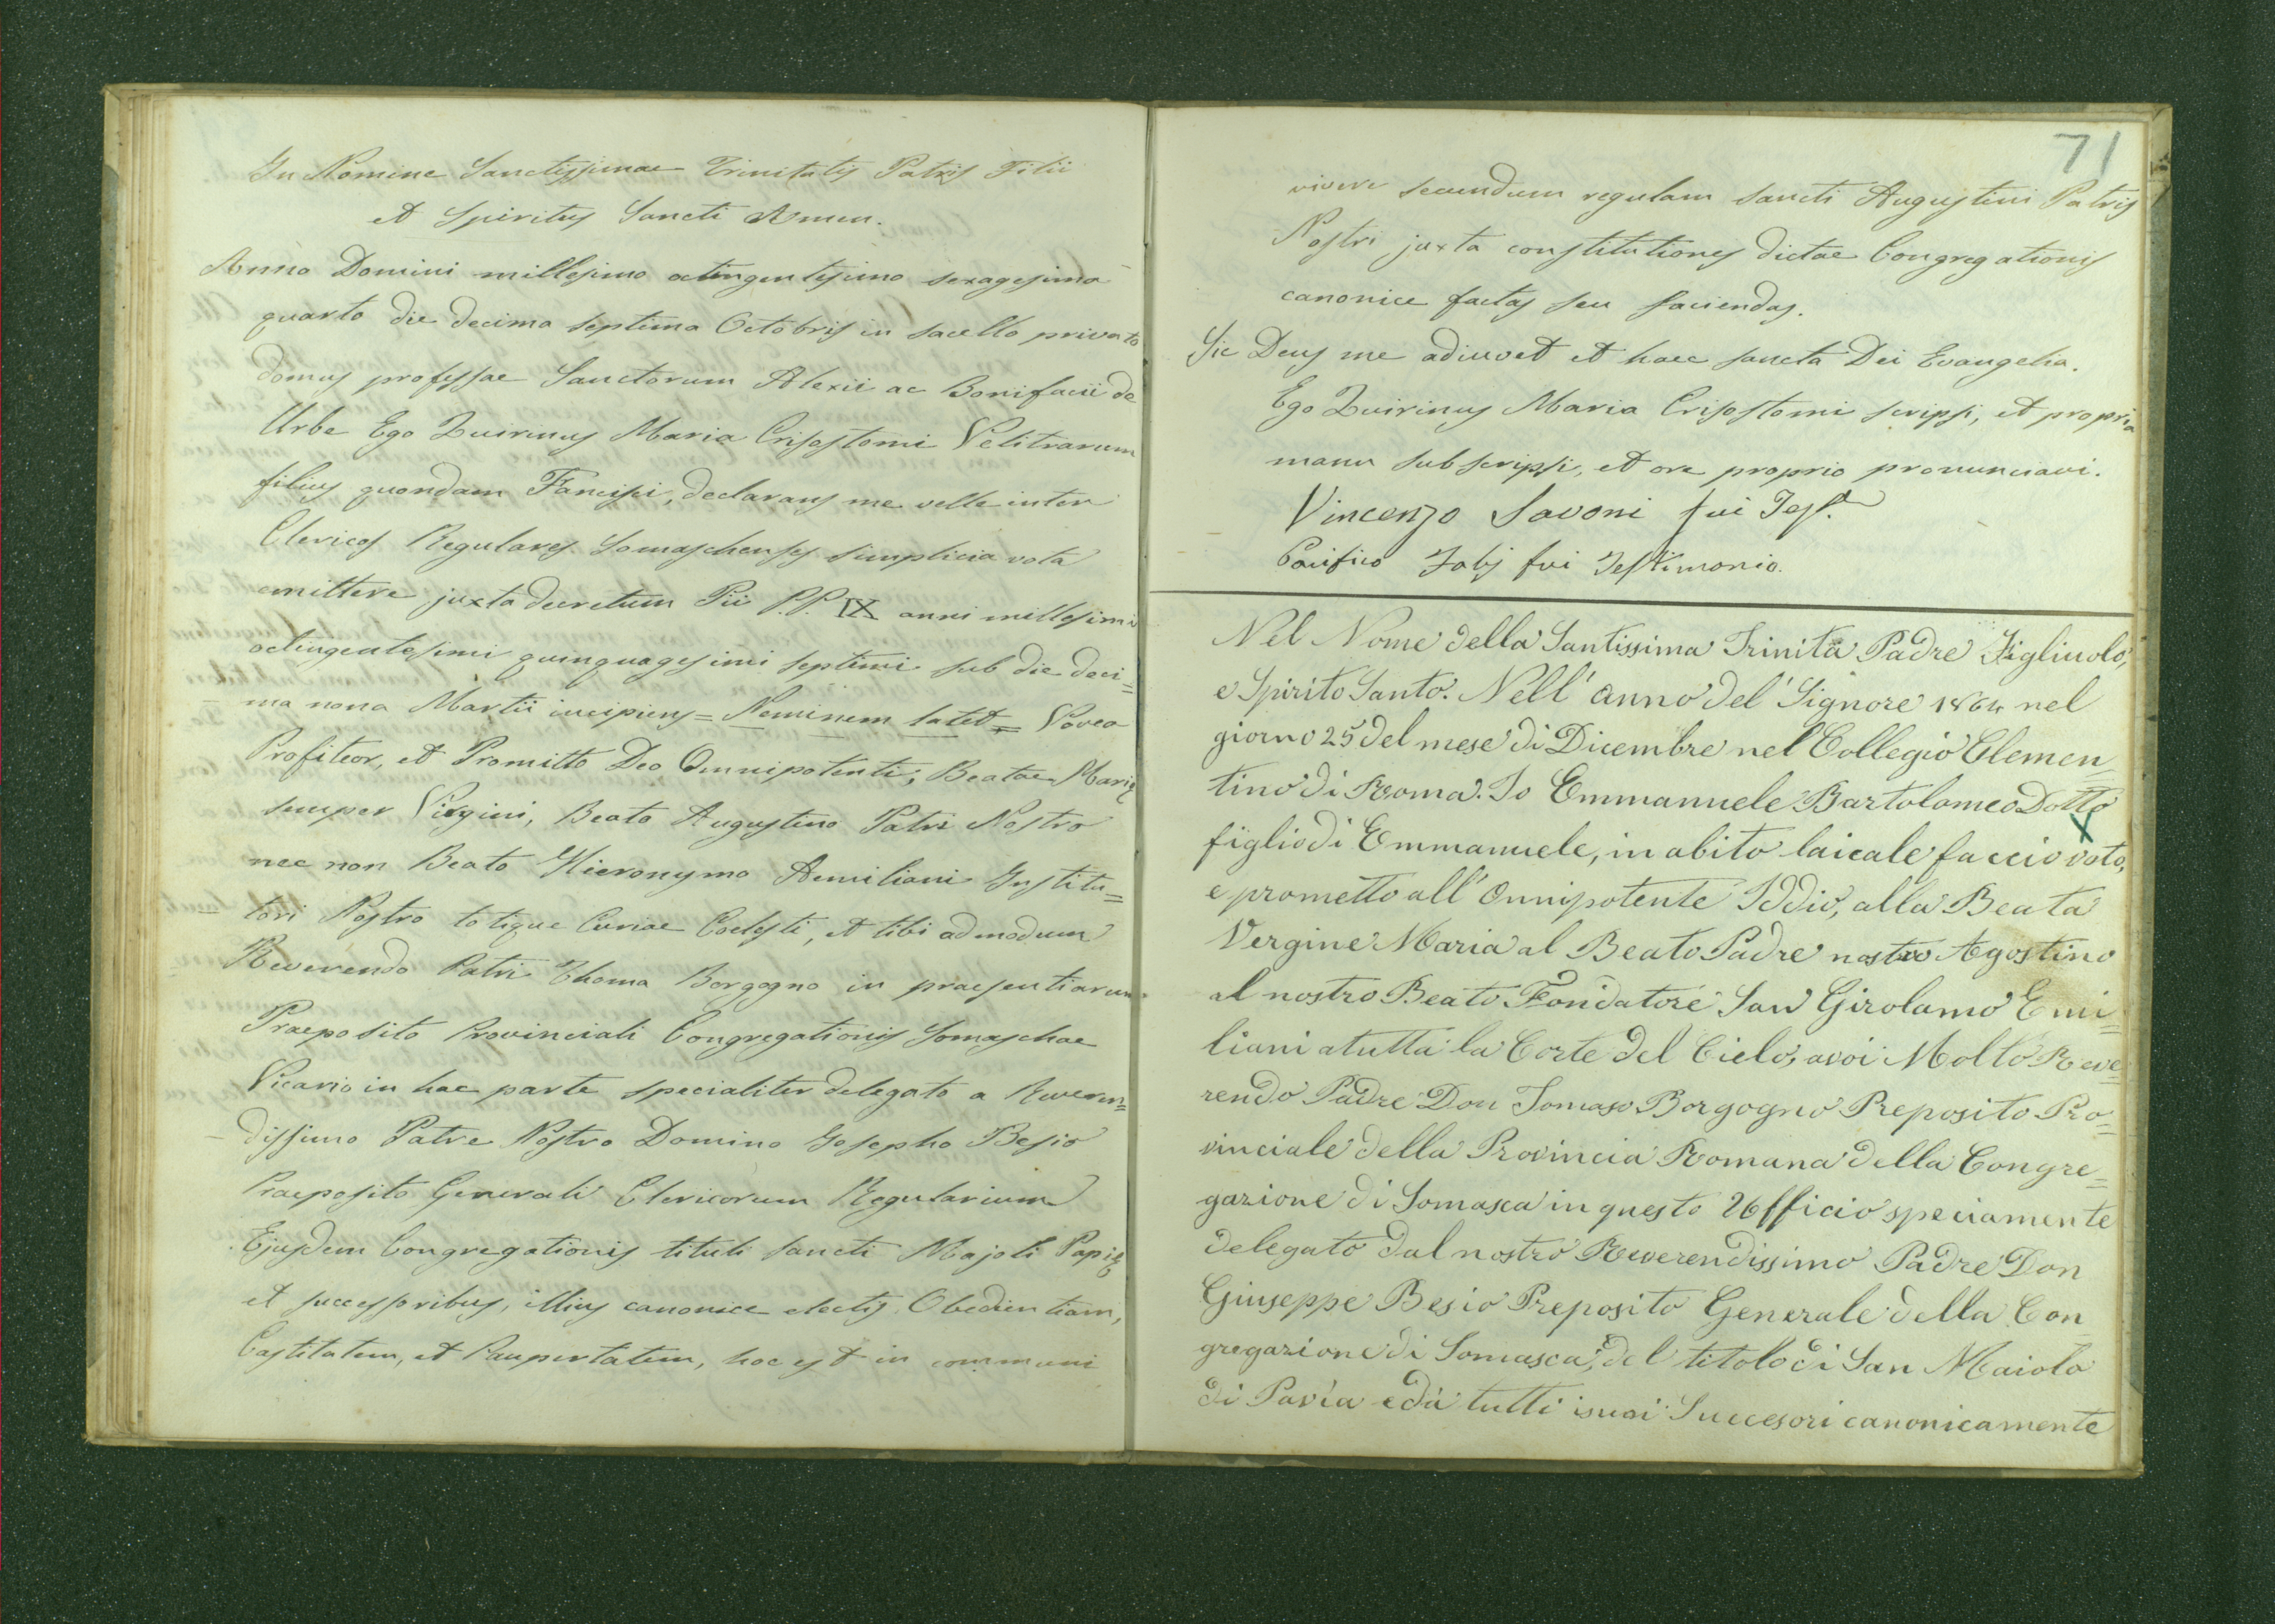 In Nomine Sanctissimae Trinitatis Patris Filii
et Spiritus Sancti Amen.
Anno Domini millesimo octingentesimo sexagesimo
quarto die decima septima Octobris in sacello privato
domus professae Sanctorum Alexii ac Bonifacii de
Urbe Ego Quirinus Maria Crisostomi Velitrarum
filius quondam Fancisci, declarans me velle inter
Clericos Regulares Somaschenses simplicia vota
emittere juxta decretum Pii P.P. IX anni millesimi
octingentesimi quinquagesimi septimi sub die deci=
ma nona Martii incipiens = Neminem latet = Voveo
Profiteor, et Promitto Deo Omnipotenti, Beatae Marię
semper Virgini, Beato Augustino Patri Nostro
nec non Beato Hieronymo Aemiliani Institu=
tori Nostro totique Curiae Coelesti, et tibi admodum
Reverendo Patri Thoma Borgogno in praesentiarum
Praeposito Provinciali Congregationis Somaschae
Vicario in hac parte specialiter delegato a Reveren=
dissimo Patre Nostro Domino Josepho Besio
Praeposito Generali Clericorum Regularium
Ejusdem Congregationis tituli Sancti Majoli Papię
et successoribus, illius canonice electis, Obedientiam,
Castitatem, et Paupertatem, hoc est in communi
71
vivere secundum regulam Sancti Augustini Patris
Nostri juxta constitutiones dictae Congregationis
canonice factas seu faciendas.
Sic Deus me adiuvet et haec sancta Dei Evangelia.
Ego Quirinus Maria Crisostomi scripsi, et propria
manu subscripsi, et ore proprio pronunciavi.
Vincenzo Savoni fui Test.
Pacifico Jobj fui Testimonio.
Nel Nome della Santissima Trinità Padre Figliuolo,
e Spirito Santo. Nell' anno del' Signore 1864 nel
giorno 25 del mese di Dicembre nel Collegio Clemen=
tino di Roma. Io Emmanuele Bartolomeo Dotto
figlio di Emmanuele, in abito laicale faccio voto,
e prometto all' Onnipotente Iddio, alla Beata
Vergine Maria al Beato Padre nostro Agostino
al nostro Beato Fondatore San Girolamo Emi=
liani a tutta la Corte del Cielo, a voi Molto Reve=
rendo Padre Don Tomaso Borgogno Preposito Pro=
vinciale della Provincia Romana della Congre=
gazione di Somasca in questo Ufficio speciamente
delegato dal nostro Reverendissimo Padre Don
Giuseppe Besio Preposito Generale della Con
gregazione di Somasca, del titolo di San Maiolo
di Pavia e da tutti i suoi Successori canonicamente